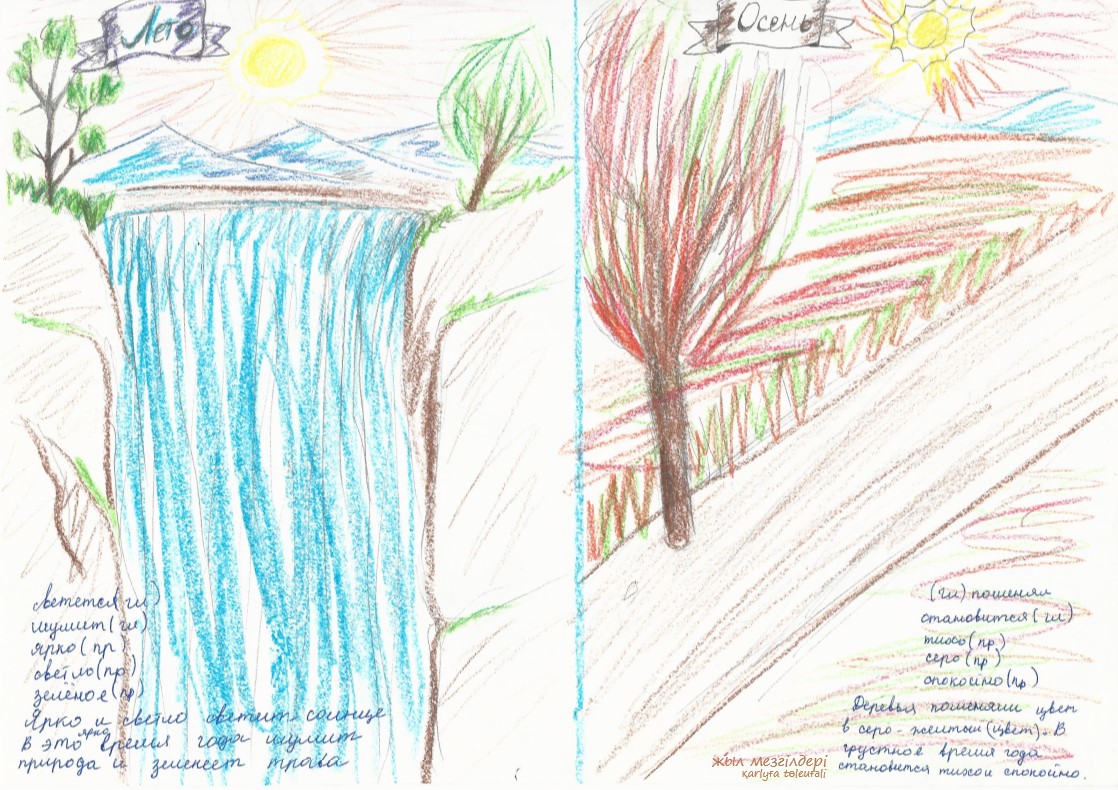 Лето
светется(гл)
шумит(гл)
ярко(пр
светло(пр)
зелёное(пр)
Ярко и светло светит солнце
ярко
в это время года шумит
природа и зеленеет трава
Осень
(гл) поменял
становится(гл)
тихо(пр)
серо(пр)
спокойно(пр)
Деревья поменяли цвет
в серо-желтый(цвет). В
грустное время года
становится тихо и спокойно.
жыл мезгілдері
karlyfa toleufali